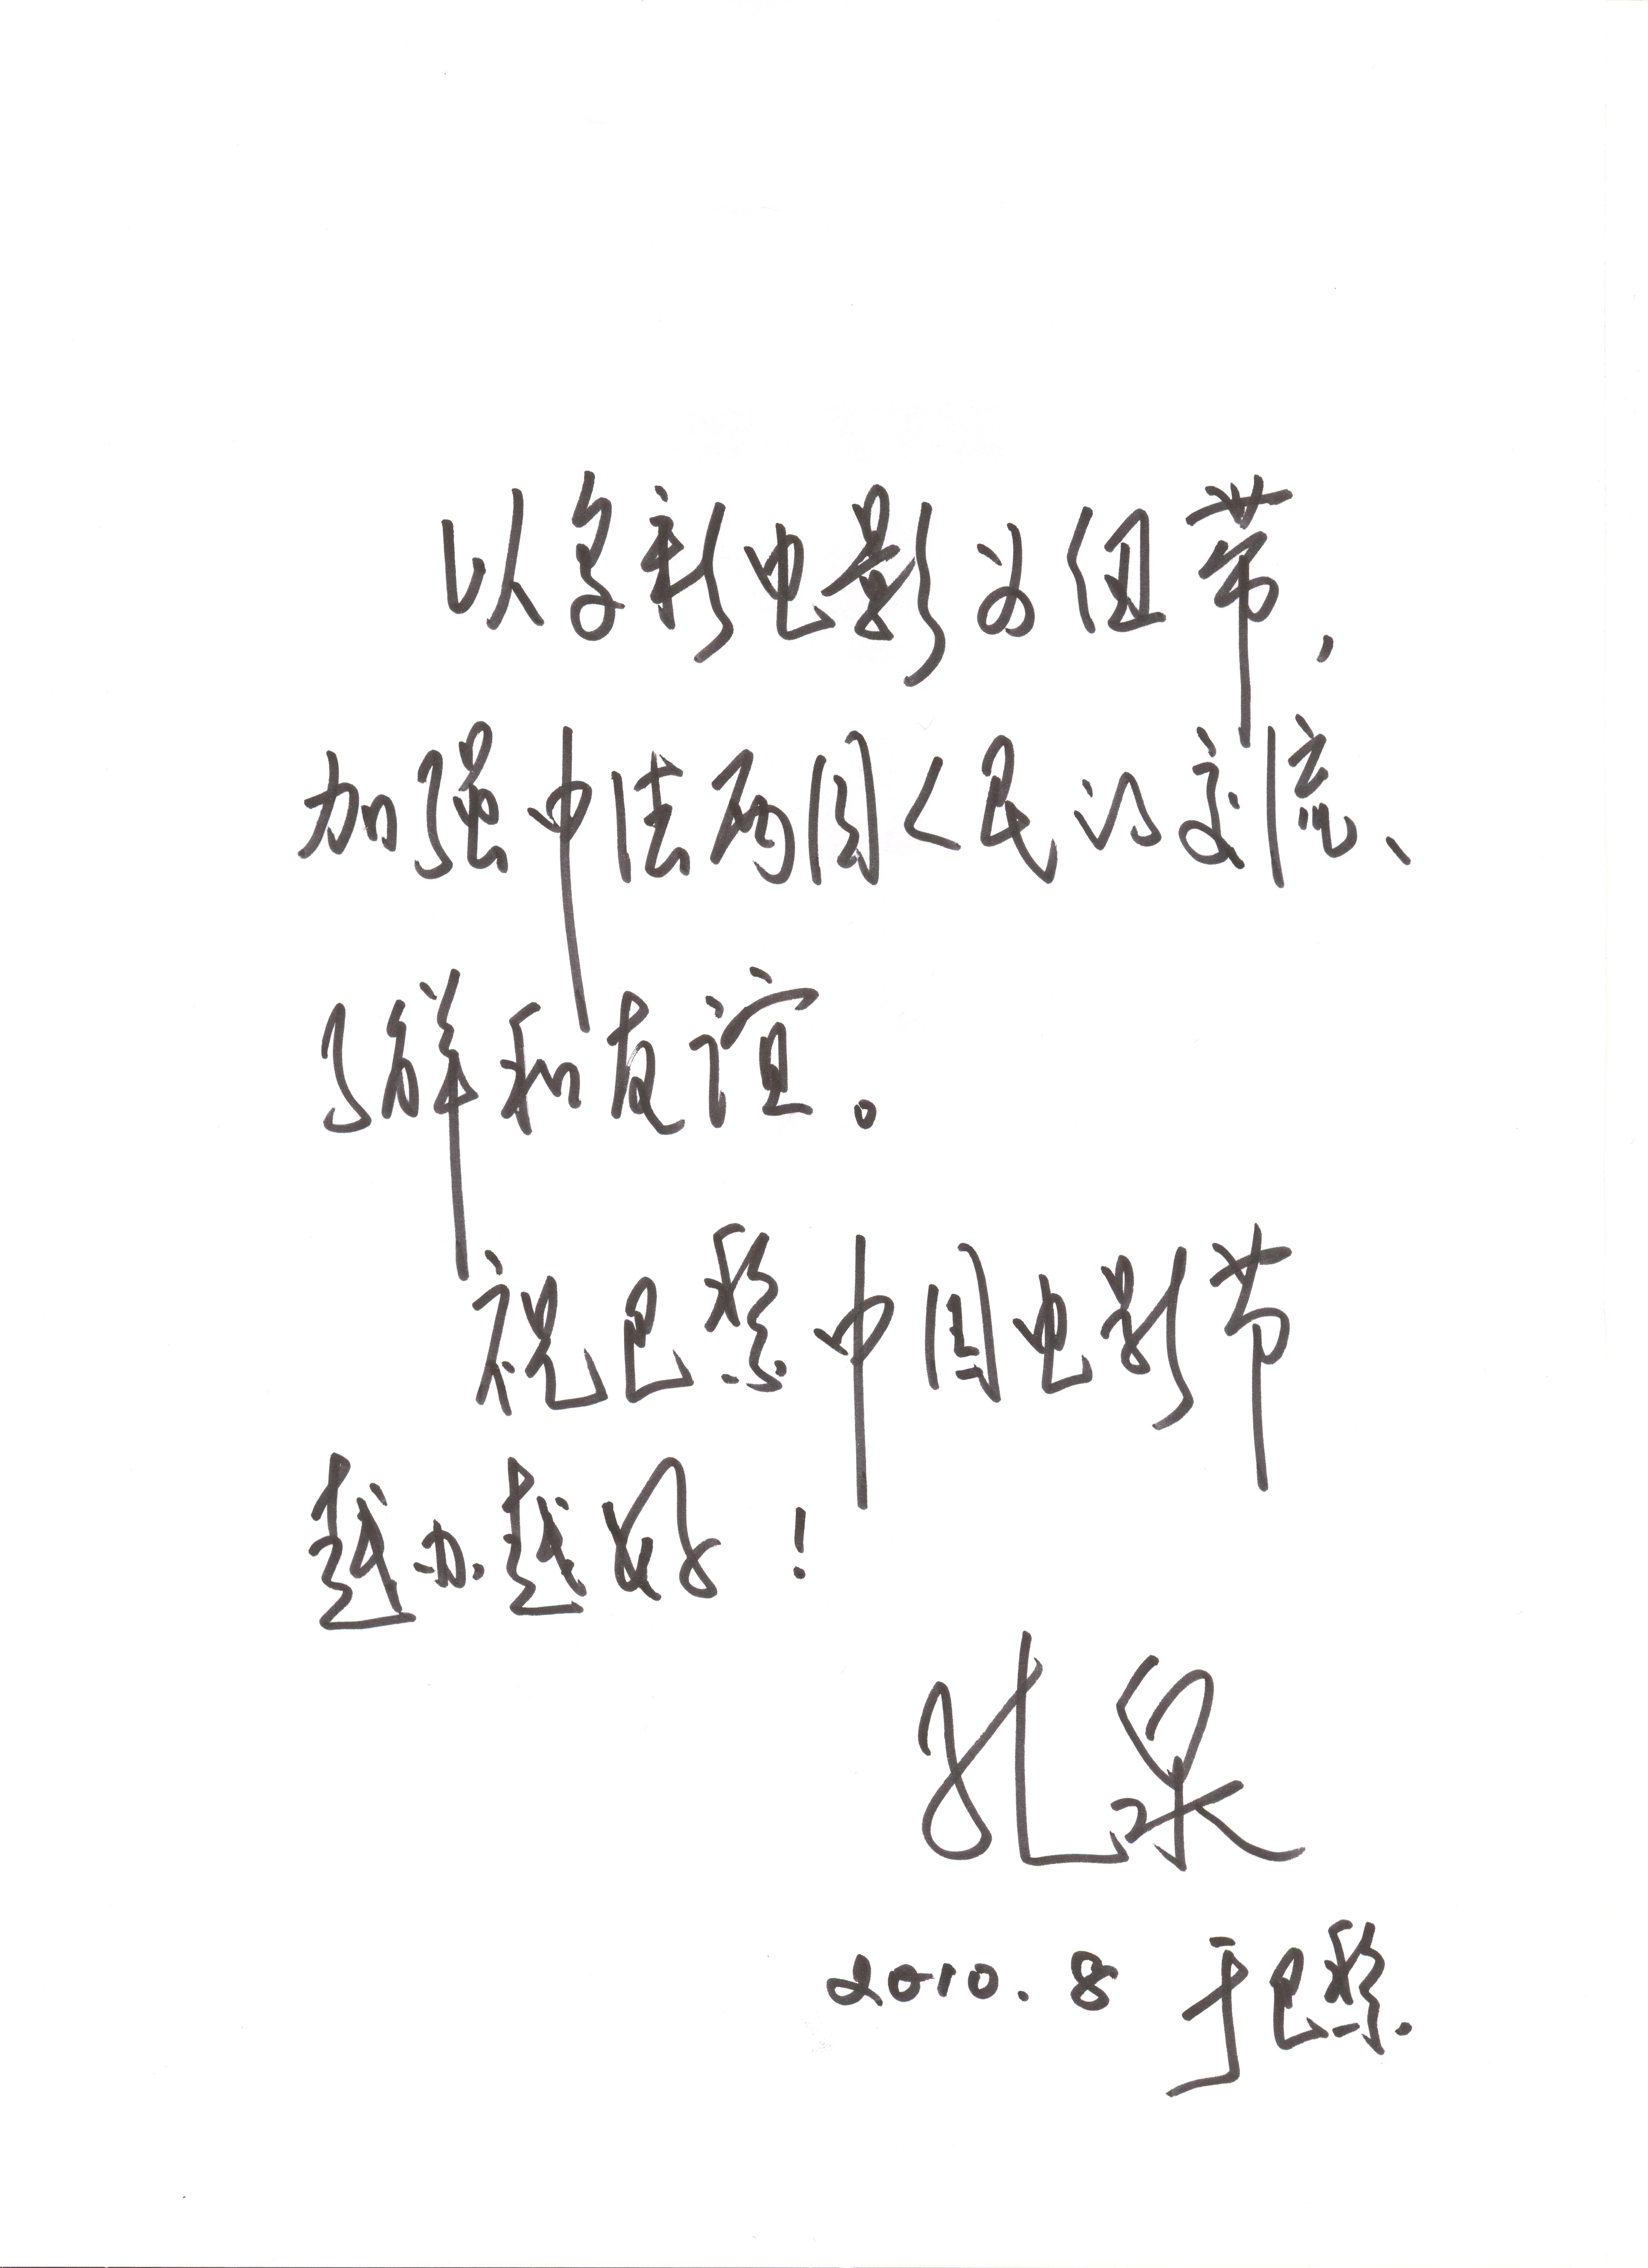 以多彩电影为纽带，
加强中法两国人民的交流、
了解和友谊。
祝巴黎中国电影节
越办越好！
孔泉
2010.8 于巴黎.